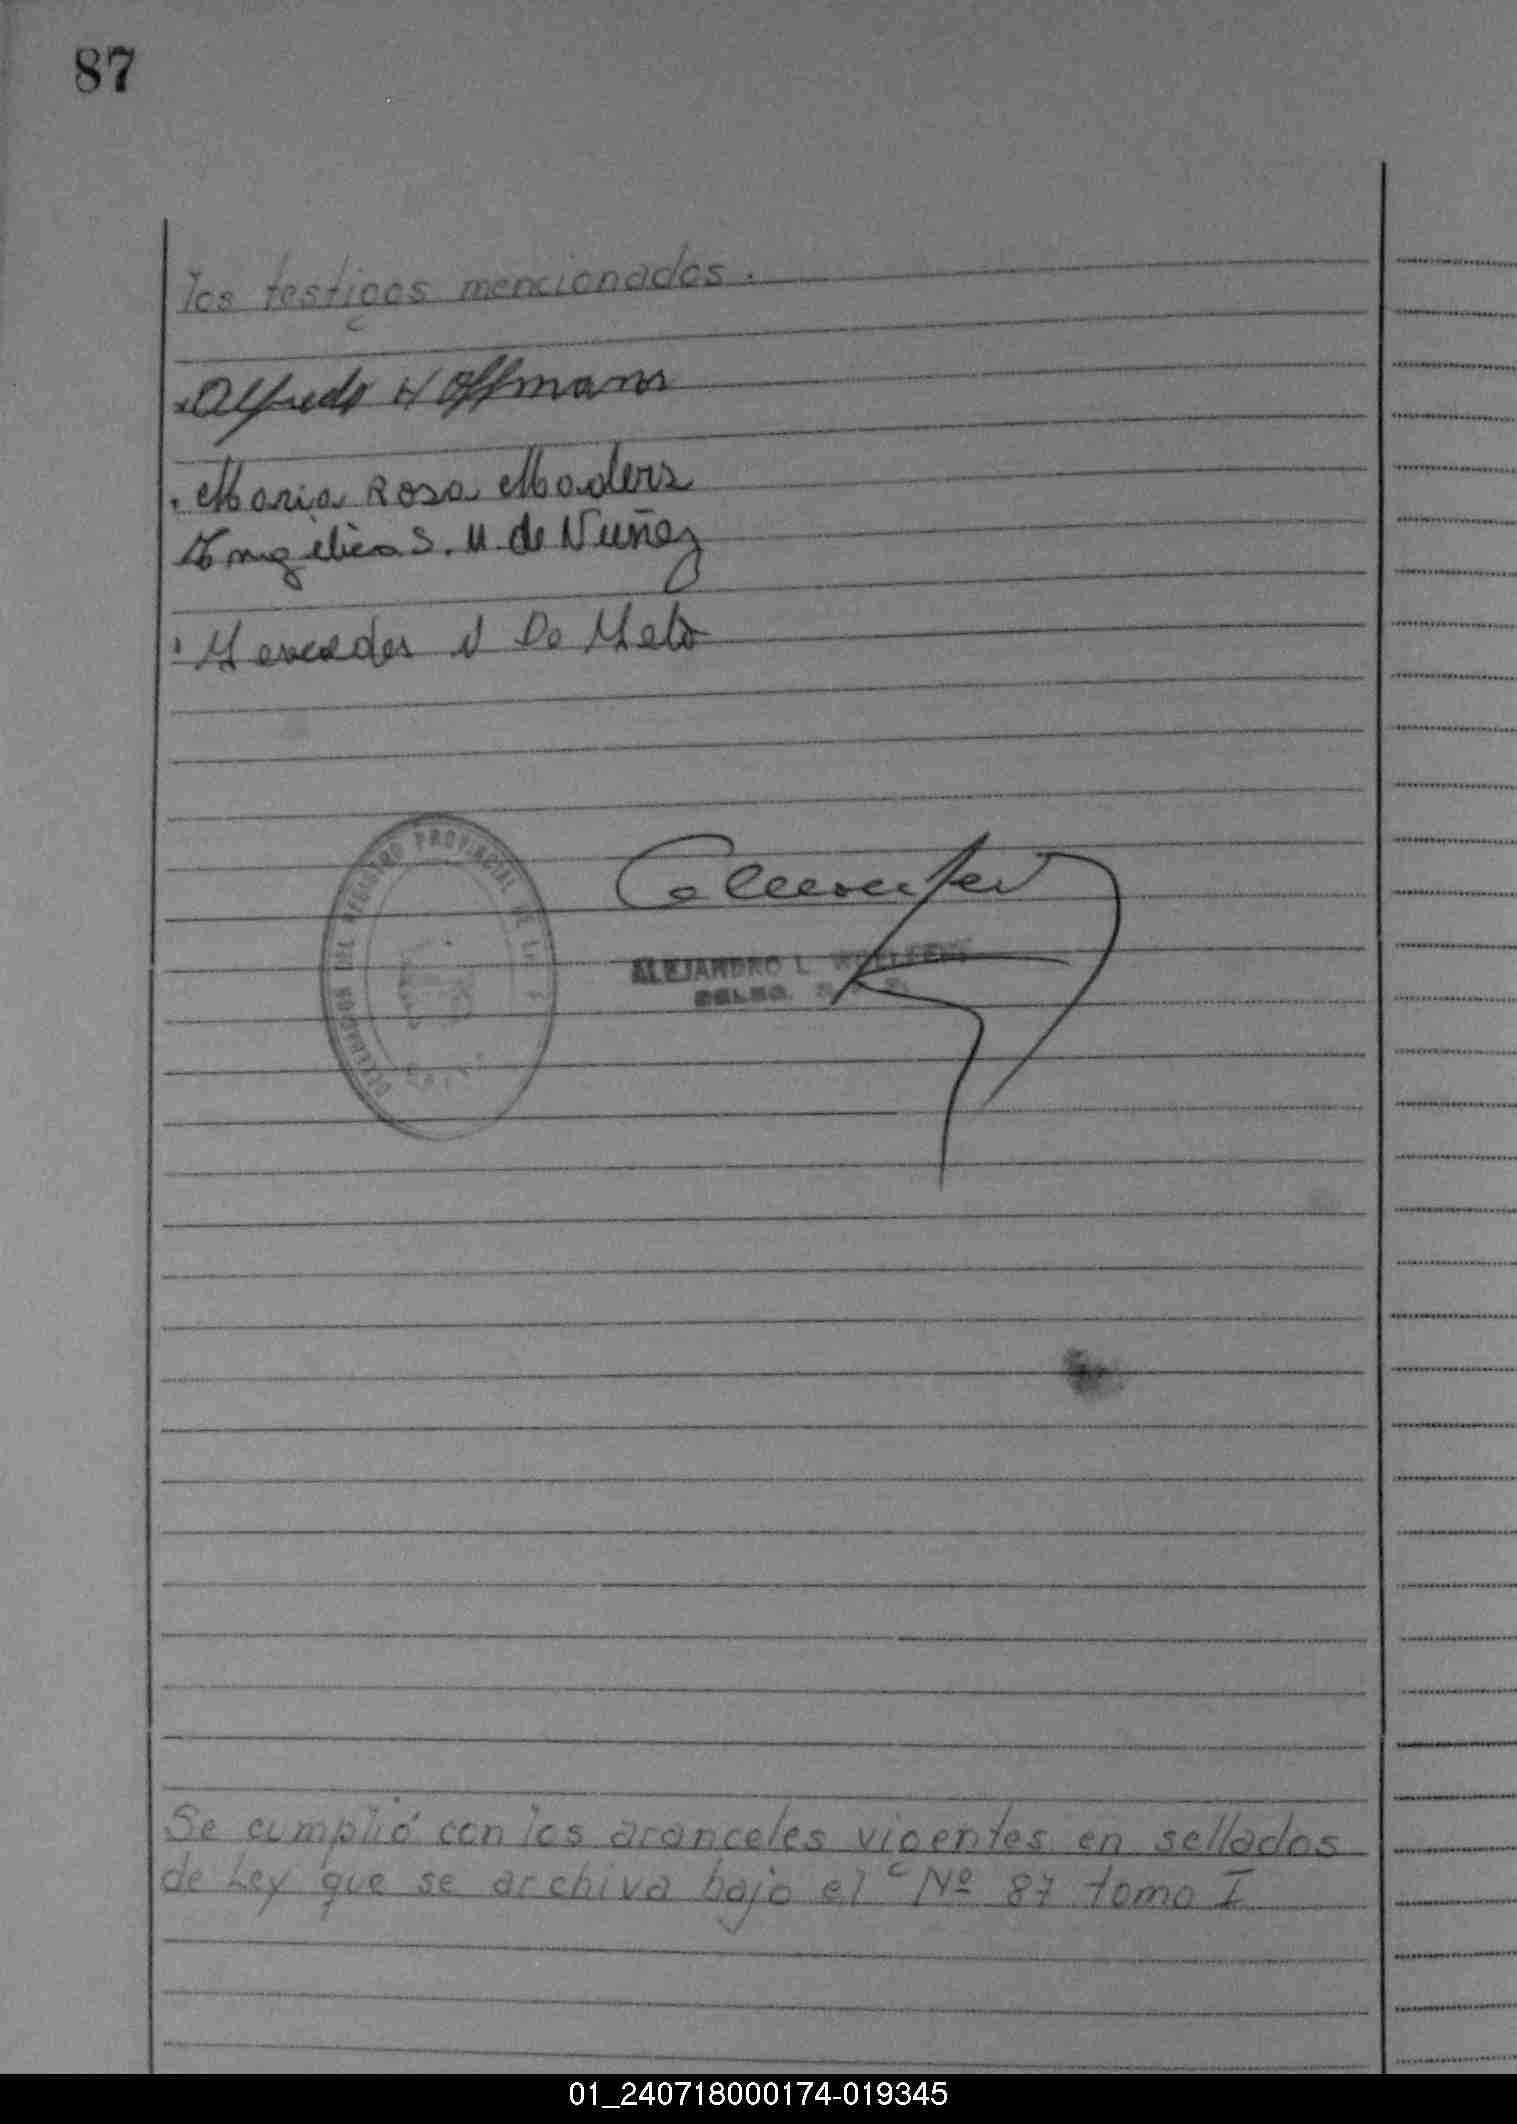 87
los testigos mencionados.
Alfredo Hoffmann
Maria Rosa Maders
Angélica S. M. de Nuñez
Mercedes N De Melo
DEL REGISTRO PROVINCIAL DE
ALEJANDRO L.
Se cumplió con los aranceles vigentes en sellados
de Ley que se archiva bajo el Nº 87 tomo I
01_240718000174-019345